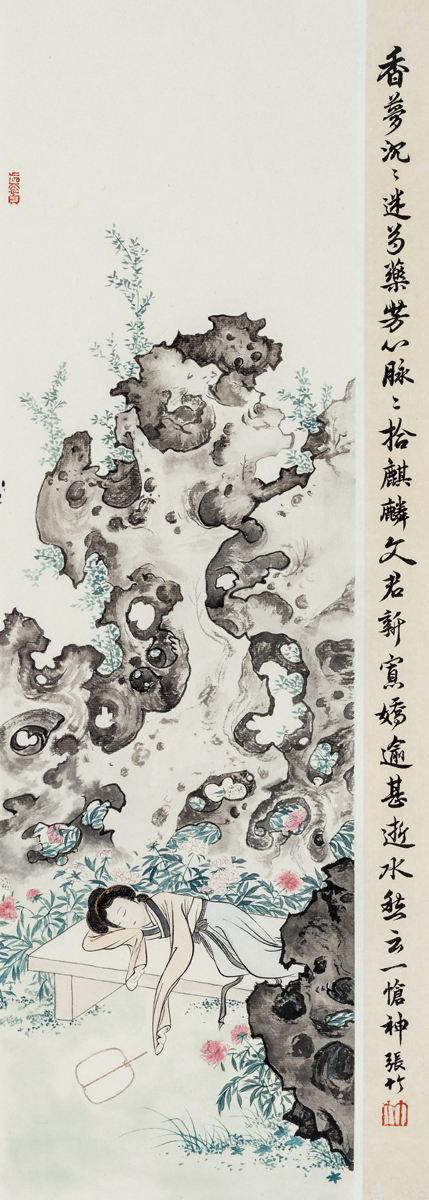 香夢沉〻迷芍藥芳心脉〻拾麒麟文君新寡嬌逾甚逝水愁云一愴神張竹